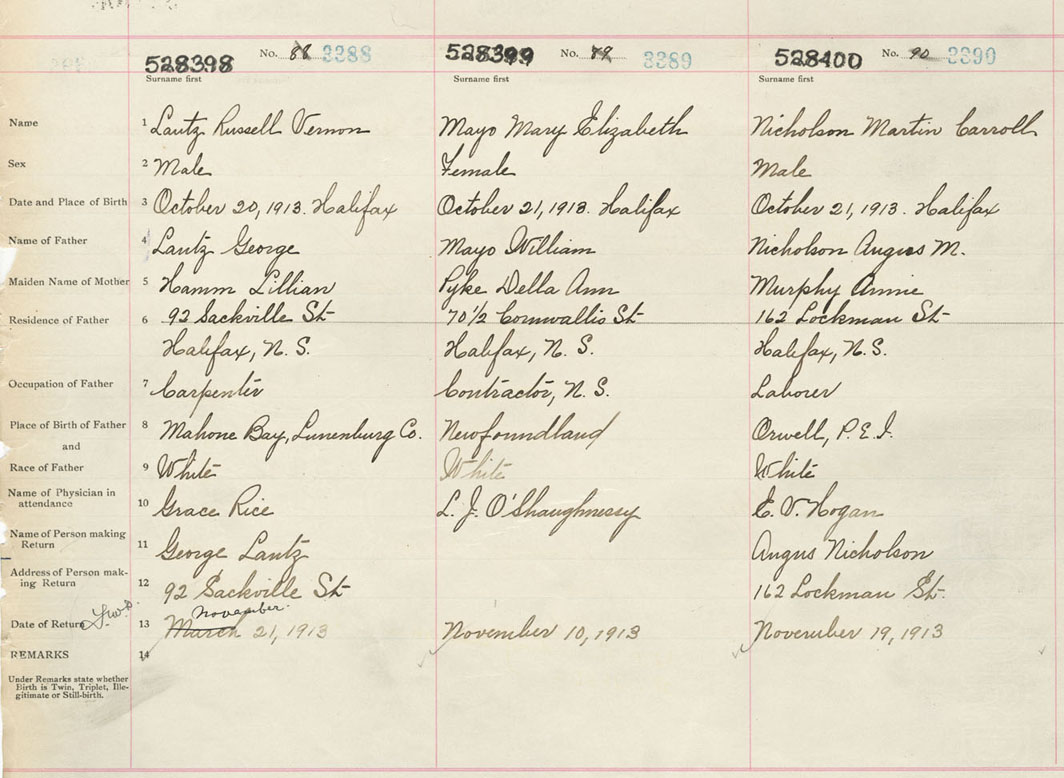 528398 No. 88 3388 528399 No. 89 3389 528400 No. 90 3390
Surname first Surname first Surname first
Name 1 Lantz Russell Vernon Mayo Mary Elizabeth Nicholson Martin Carroll
Sex 2 Male Female Male
Date and Place of Birth 3 October 20, 1913. Halifax October 21, 1913. Halifax October 21, 1913. Halifax
Name of Father 4 Lantz George Mayo William Nicholson Angus M.
Maiden Name of Mother 5 Hamm Lillian Pyke Della Ann Murphy Annie
Residence of Father 6 92 Sackville St 70 1/2 Cornwallis St 162 Lockman St
Halifax, N. S. Halifax, N. S. Halifax, N. S.
Occupation of Father 7 Carpenter Contractor, N. S. Laborer
Place of Birth of Father 8 Mahone Bay, Lunenburg Co. Newfoundland Orwell, P. E. I.
and
Race of Father 9 White White White
Name of Physician in
attendance 10 Grace Rice L. J. O'Shaughnessy E. V. Hogan
Name of Person making
Return 11 George Lantz Angus Nicholson
Address of Person mak-
ing Return 12 92 Sackville St 162 Lockman St.
November
Date of Return 13 March 21, 1913 November 10, 1913 November 19, 1913
REMARKS 14
Under Remarks state whether
Birth is Twin, Triplet, Ille-
gitimate or Still-birth.